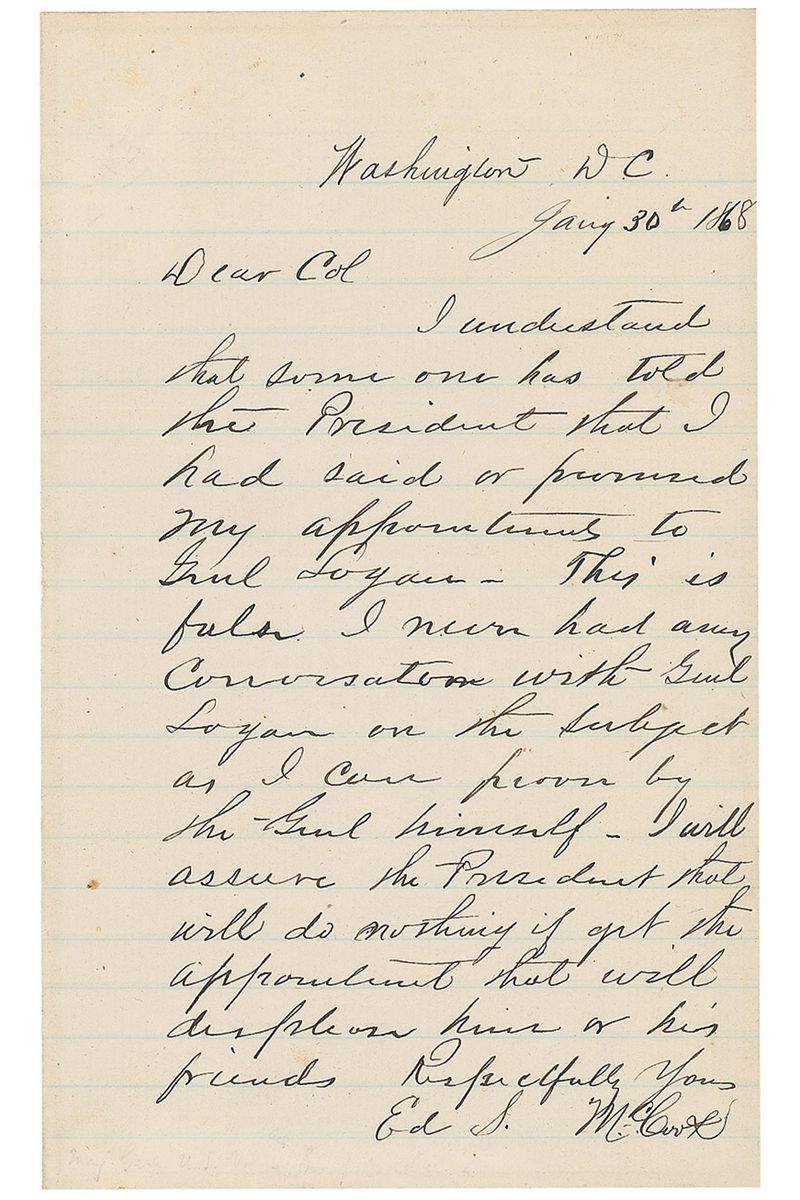 Washington D C.
Jany 30th 1868
Dear Col
I understand
that some one has told
the President that I
had said or promised
my appointments to
Genl Logan – This is
false. I never had any
Conversation with Genl
Logan on the subject
as I can prove by
the Genl himself – I will
assure the President that
will do nothing if get the
appointment that will
displease him or his
friends Respectfully Yours
Ed S. McCook